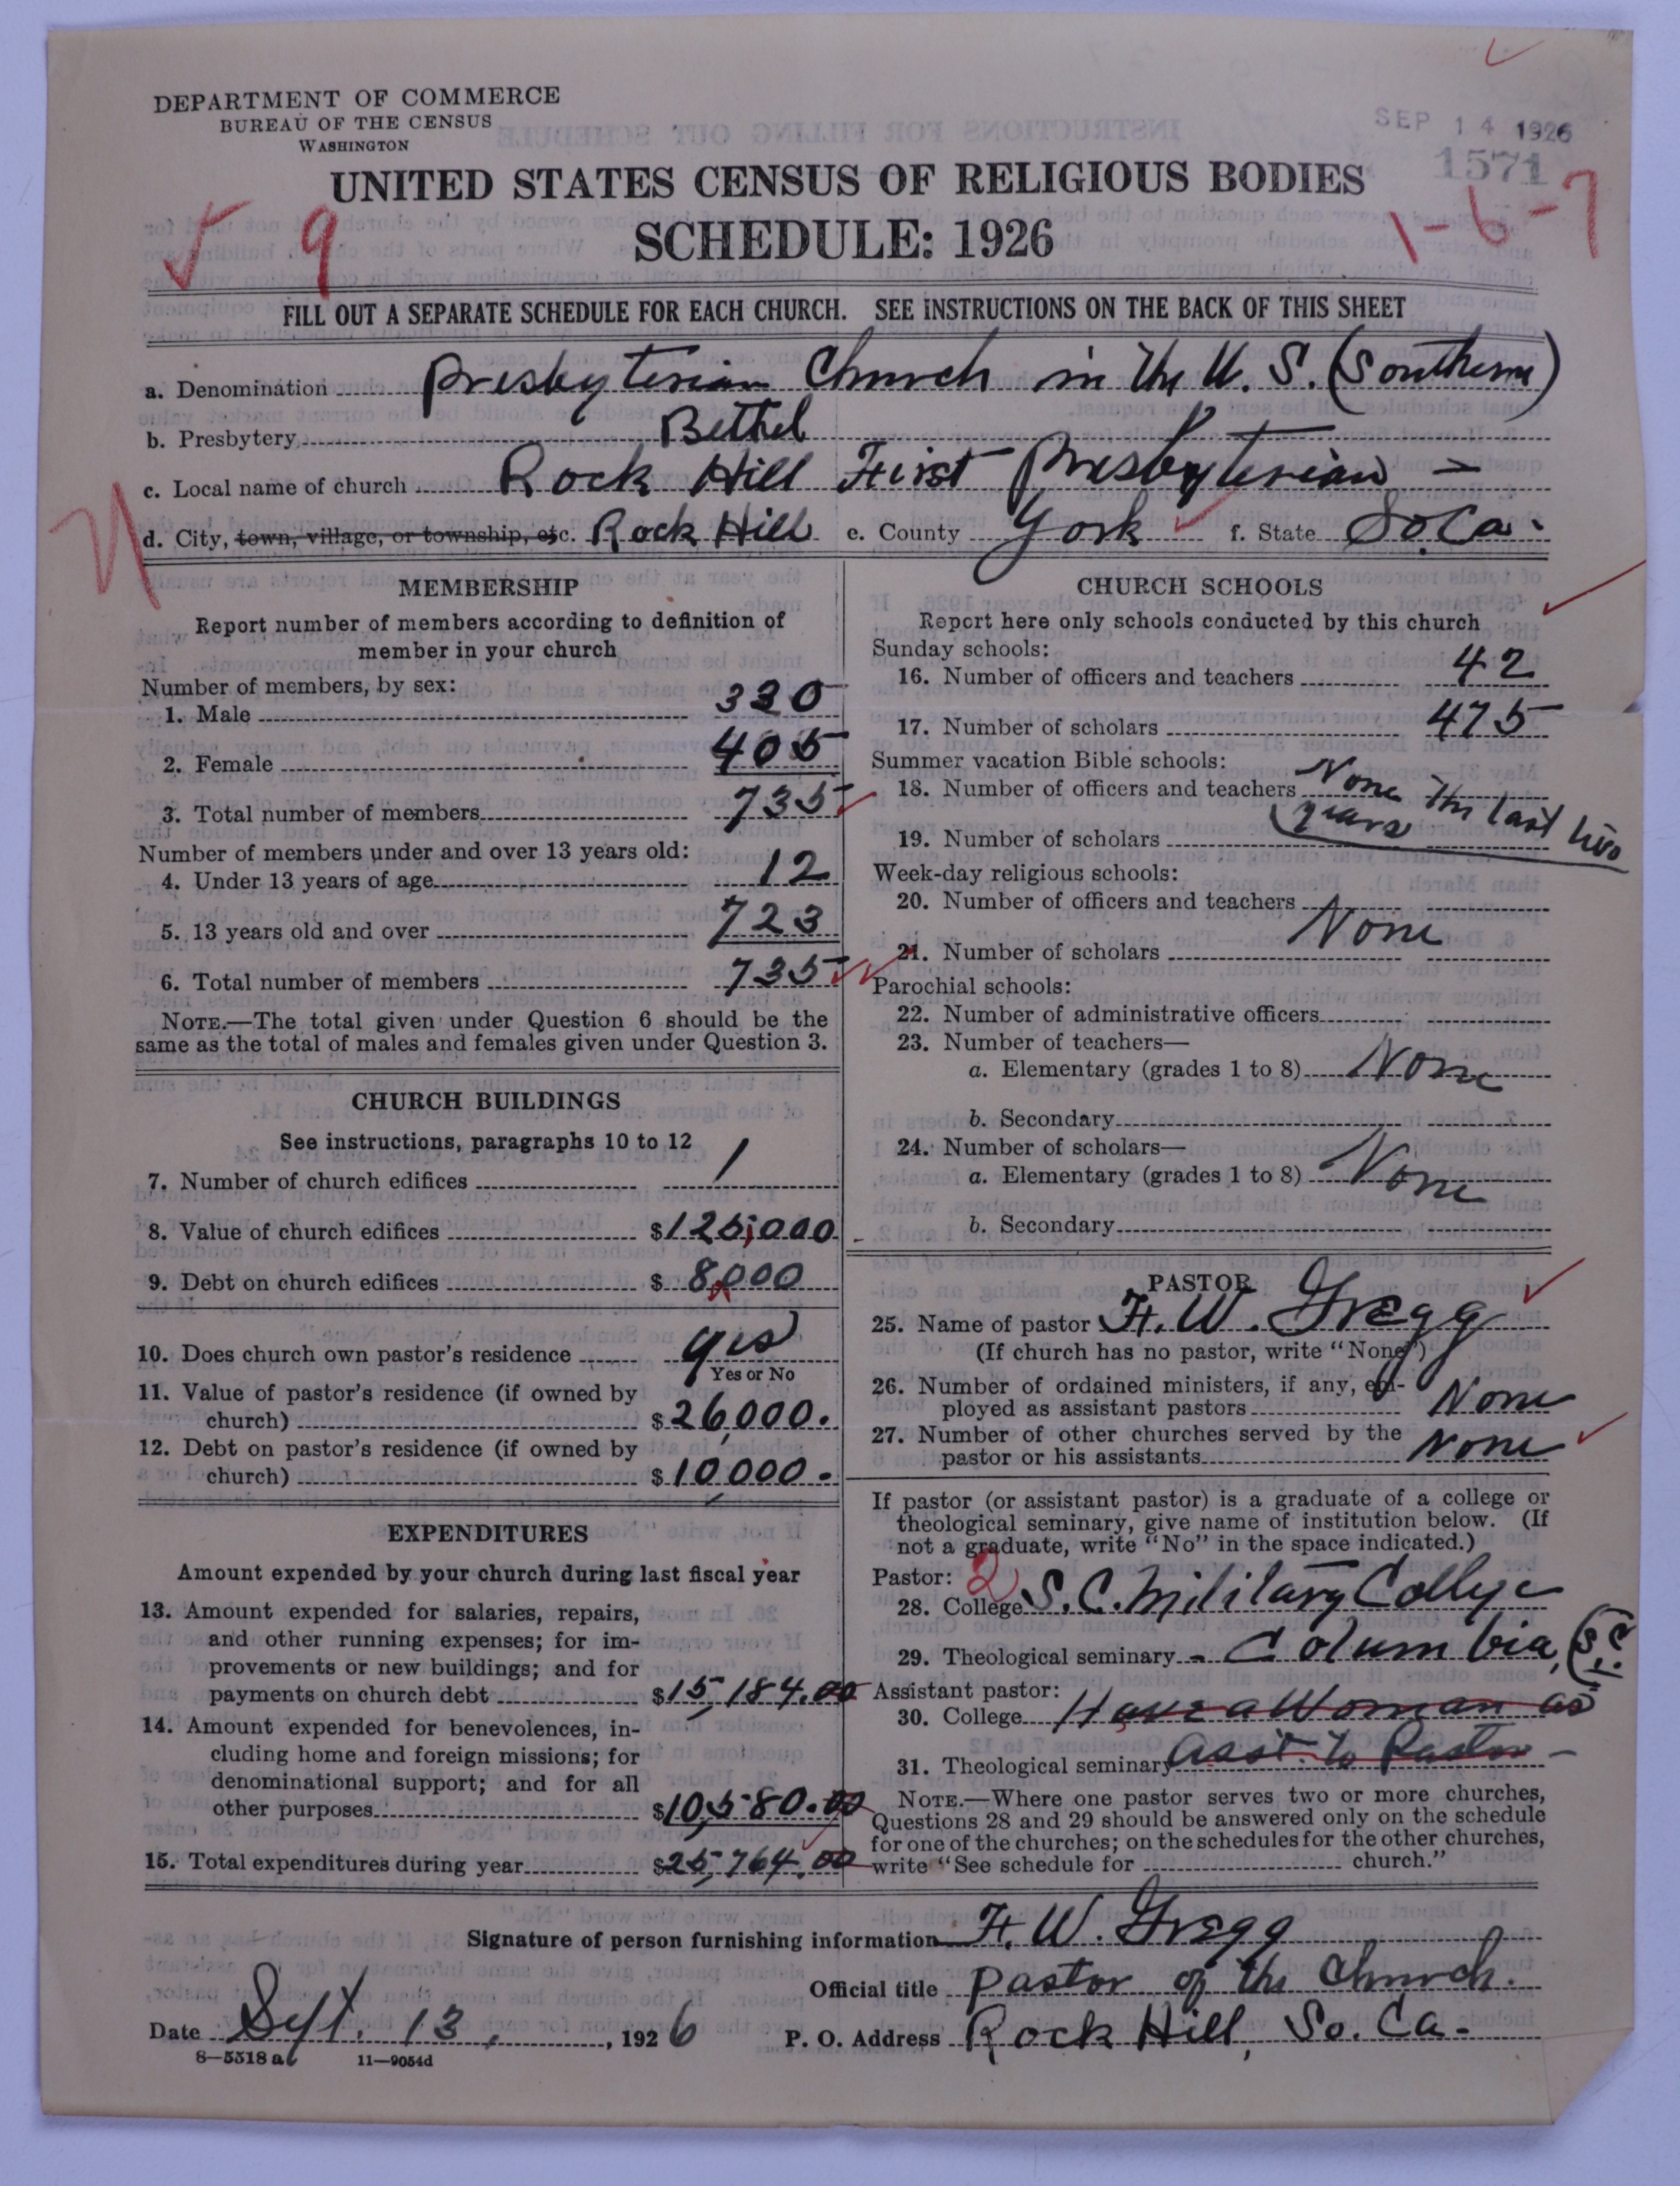 DEPARTMENT OF COMMERCE
BUREAU OF THE CENSUS
WASHINGTON
SEP 14 1926
1571
UNITED STATES CENSUS OF RELIGIOUS BODIES
SCHEDULE: 1926
9
1-6-7
FILL OUT A SEPARATE SCHEDULE FOR EACH CHURCH. SEE INSTRUCTIONS ON THE BACK OF THIS SHEET
a. Denomination Presbyterian Church in the U. S. (Southern)
b. Presbytery Bethel
c. Local name of church Rock Hill First Presbyterian -
d. City, town, village, or township, etc. Rock Hill e. County York f. State So. Ca.
MEMBERSHIP
Report number of members according to definition of
member in your church
Number of members, by sex:
1. Male 330
2. Female 405
3. Total number of members 735
Number of members under and over 13 years old:
4. Under 13 years of age 12
5. 13 years old and over 723
6. Total number of members 735
NOTE.—The total given under Question 6 should be the
same as the total of males and females given under Question 3.
CHURCH BUILDINGS
See instructions, paragraphs 10 to 12
7. Number of church edifices 1
8. Value of church edifices $125,000
9. Debt on church edifices $8,000
10. Does church own pastor's residence yes
Yes or No
11. Value of pastor's residence (if owned by
church) $26,000.
12. Debt on pastor's residence (if owned by
church) $10,000.
EXPENDITURES
Amount expended by your church during last fiscal year
13. Amount expended for salaries, repairs,
and other running expenses; for im-
provements or new buildings; and for
payments on church debt $15,184.00
14. Amount expended for benevolences, in-
cluding home and foreign missions; for
denominational support; and for all
other purposes $10,580.00
15. Total expenditures during year $25,764.00
CHURCH SCHOOLS
Report here only schools conducted by this church
Sunday schools:
16. Number of officers and teachers 42
17. Number of scholars 475
Summer vacation Bible schools:
18. Number of officers and teachers None the last two
years
19. Number of scholars
Week-day religious schools:
20. Number of officers and teachers
None
21. Number of scholars
Parochial schools:
22. Number of administrative officers
23. Number of teachers—
a. Elementary (grades 1 to 8) None
b. Secondary
24. Number of scholars—
a. Elementary (grades 1 to 8) None
b. Secondary
PASTOR
25. Name of pastor F. W. Gregg
(If church has no pastor, write "None")
26. Number of ordained ministers, if any, em-
ployed as assistant pastors None
27. Number of other churches served by the
pastor or his assistants None
If pastor (or assistant pastor) is a graduate of a college or
theological seminary, give name of institution below. (If
not a graduate, write "No" in the space indicated.)
Pastor: 2
28. College S. C. Military College
29. Theological seminary - Columbia, (S.C.)
Assistant pastor:
30. College Have a Woman as
31. Theological seminary Asst. to Pastor -
NOTE.—Where one pastor serves two or more churches,
Questions 28 and 29 should be answered only on the schedule
for one of the churches; on the schedules for the other churches,
write "See schedule for church."
Signature of person furnishing information F. W. Gregg
Official title Pastor of the Church.
Date Sept. 13, 1926 P. O. Address Rock Hill, So. Ca.
8—5518 a 11—9054d